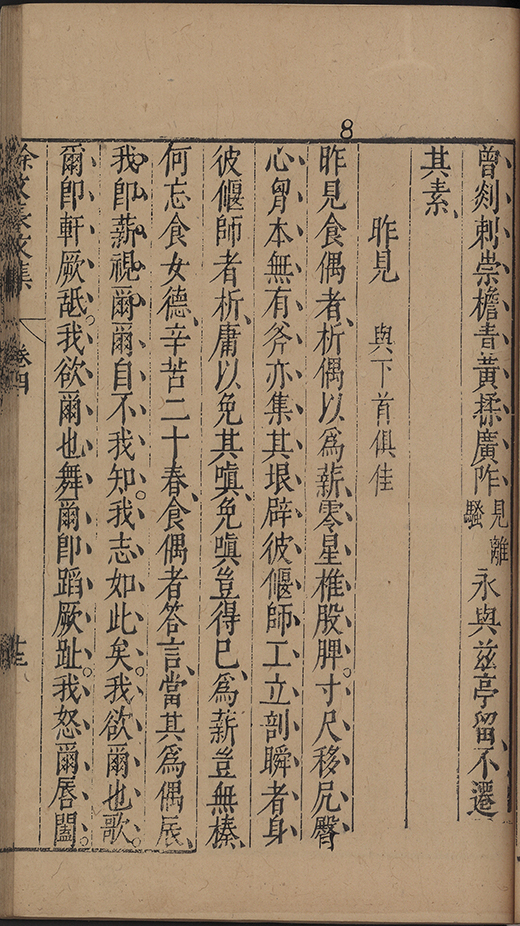 8
曾剡刺崇檐青黃揉廣咋見離騷永與茲亭留不遷
其素
昨見 與下首俱佳
昨見食偶者析偶以爲薪零星椎股脾寸尺移尻臀
心胷本無有斧亦集其垠辟彼偃師工立剖瞬者身
彼偃師者析庸以免其嗔免嗔豈得已爲薪豈無榛
何忘食女德辛苦二十春食偶者答言當其爲偶辰
我卽薪視爾爾自不我知我志如此矣我欲爾也歌
爾卽軒厥䑛我欲爾也舞爾卽蹈厥趾我怒爾唇闔
徐文長文集 卷四 十三